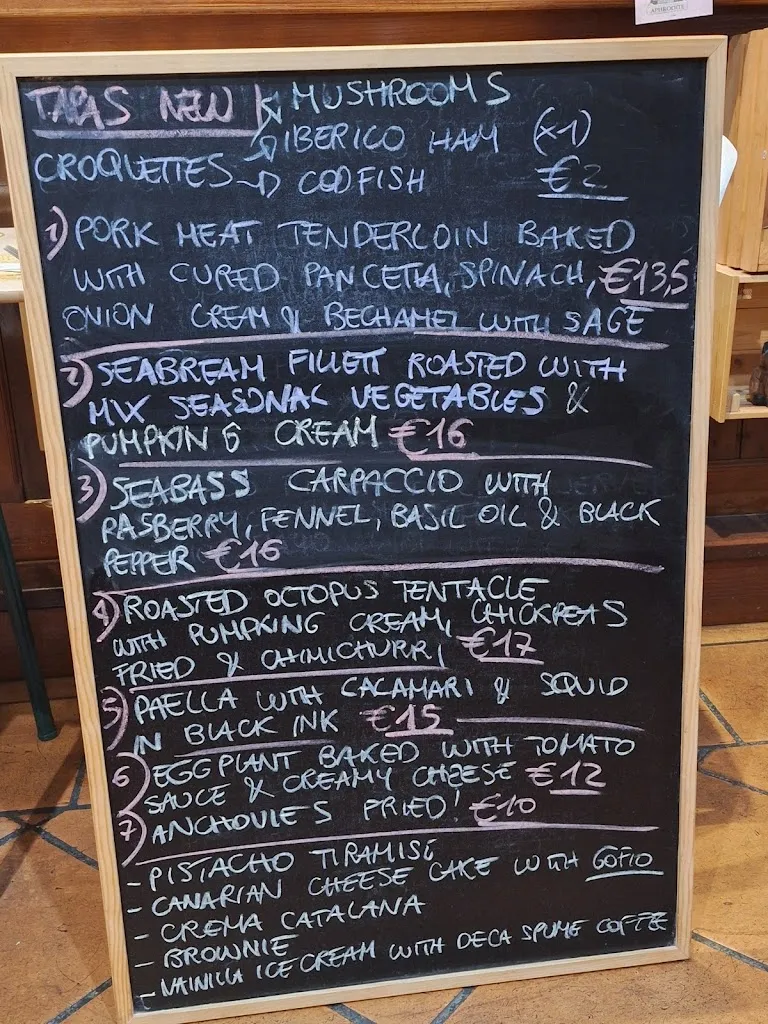 APHRODITE
TAPAS NEW MUSHROOMS
IBERICO HAM (x1)
CROQUETTES CODFISH €2
1) PORK MEAT TENDERLOIN BAKED
WITH CURED PANCETTA, SPINACH, €13,5
ONION CREAM & BECHAMEL WITH SAGE
2) SEABREAM FILLETT ROASTED WITH
MIX SEASONAL VEGETABLES &
PUMPKIN G CREAM €16
3) SEABASS CARPACCIO WITH
RASBERRY, FENNEL, BASIL OIL & BLACK
PEPPER €16
4) ROASTED OCTOPUS TENTACLE
WITH PUMPKING CREAM, CHICKPEAS
FRIED & CHIMICHURRI €17
5) PAELLA WITH CALAMARI & SQUID
IN BLACK INK €15
6) EGGPLANT BAKED WITH TOMATO
SAUCE & CREAMY CHEESE €12
7) ANCHOVIES FRIED! €10
- PISTACHO TIRAMISÚ
- CANARIAN CHEESE CAKE WITH GOFIO
- CREMA CATALANA
- BROWNIE
- VAINILLA ICE CREAM WITH DECA SPUME COFFE